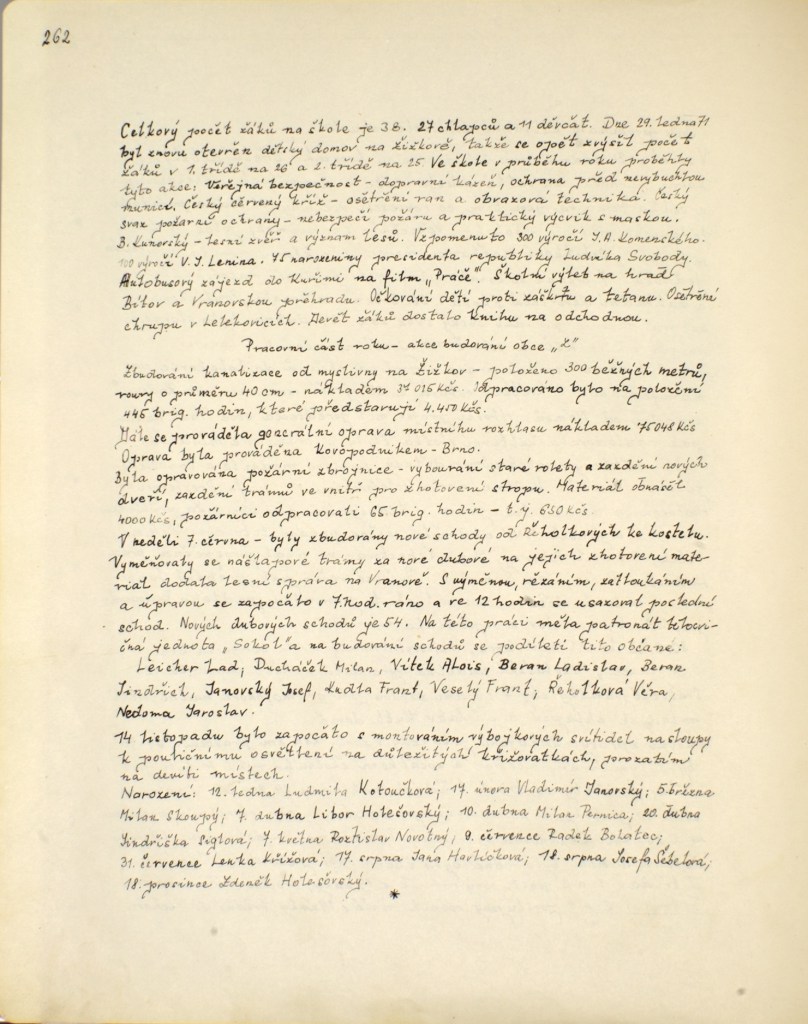 262
Celkový počet žáků na škole je 38. 27 chlapců a 11 děvčat. Dne 29. ledna 71
byl znovu otevřen dětský domov na Žižkově, takže se opět zvýšil počet
žáků v 1. třídě na 26 a 2. třídě na 25 Ve škole v průběhu roku proběhly
tyto akce: Veřejná bezpečnost – dopravní kázeň, ochrana před nevybuchlou
municí. Český červený kříž – ošetření ran a obvazová technika. Český
svaz požární ochrany – nebezpečí požáru a praktický výcvik s maskou.
B. Kuňorský – lesní zvěř a význam lesů. Vzpomenuto 300 výročí J. A. Komenského.
100 výročí V. I. Lenina. 75 narozeniny presidenta republiky Ludvíka Svobody.
Autobusový zájezd do Kuřimi na film „Práče“. Školní výlet na hrad
Bítov a Vranovskou přehradu. Očkování dětí proti záškrtu a tetanu. Ošetření
chrupu v Lelekovicích. Devět žáků dostalo knihu na odchodnou.
Pracovní část roku – akce budování obce „Z“
Zbudování kanalizace od myslivny na Žižkov – položeno 300 běžných metrů,
roury o průměru 40 cm – nákladem 37 015 Kčs. Odpracováno bylo na položení
445 brig. hodin, které představují 4.450 Kčs.
Dále se prováděla generální oprava místního rozhlasu nákladem 75048 Kčs
Oprava byla prováděna Kovopodnikem – Brno.
Byla opravována požární zbrojnice – vybourání staré rolety a zazdění nových
dveří, zazdění trámů ve vnitř pro zhotovení stropu. Materiál obnášel
4000 Kčs, požárníci odpracovali 65 brig. hodin – t. j. 650 Kčs.
V neděli 7. června – byly zbudovány nové schody od Řeholkových ke kostelu.
Vyměňovaly se nášlapové trámy za nové dubové na jejich zhotovení mate-
riál dodala lesní správa na Vranově. S výměnou, řezáním, zatloukáním
a úpravou se započalo v 7. hod. ráno a ve 12 hodin se usazoval poslední
schod. Nových dubových schodů je 54. Na této práci měla patronát tělocvi-
čná jednota „Sokol“ a na budování schodů se podíleli tito občané:
Leicher Lad, Ducháček Milan, Vítek Alois, Beran Ladislav, Beran
Jindřich, Janovský Josef, Kudla Frant, Veselý Frant, Řeholková Věra,
Nedoma Jaroslav.
14 listopadu bylo započato s montováním výbojkových svítidel na sloupy
k pouličnímu osvětlení na důležitých křižovatkách, prozatím
na devíti místech.
Narození: 12. ledna Ludmila Kotoučková; 17. února Vladimír Janovský; 5. března
Milan Skoupý; 7. dubna Libor Holešovský; 10. dubna Milan Pernica; 20. dubna
Jindřiška Siglová; 7. května Rostislav Novotný, 9. července Radek Bohatec;
31. července Lenka Křížová; 17. srpna Jana Havlíčková; 18. srpna Josefa Šebelová;
18. prosince Zdeněk Holešovský.
*